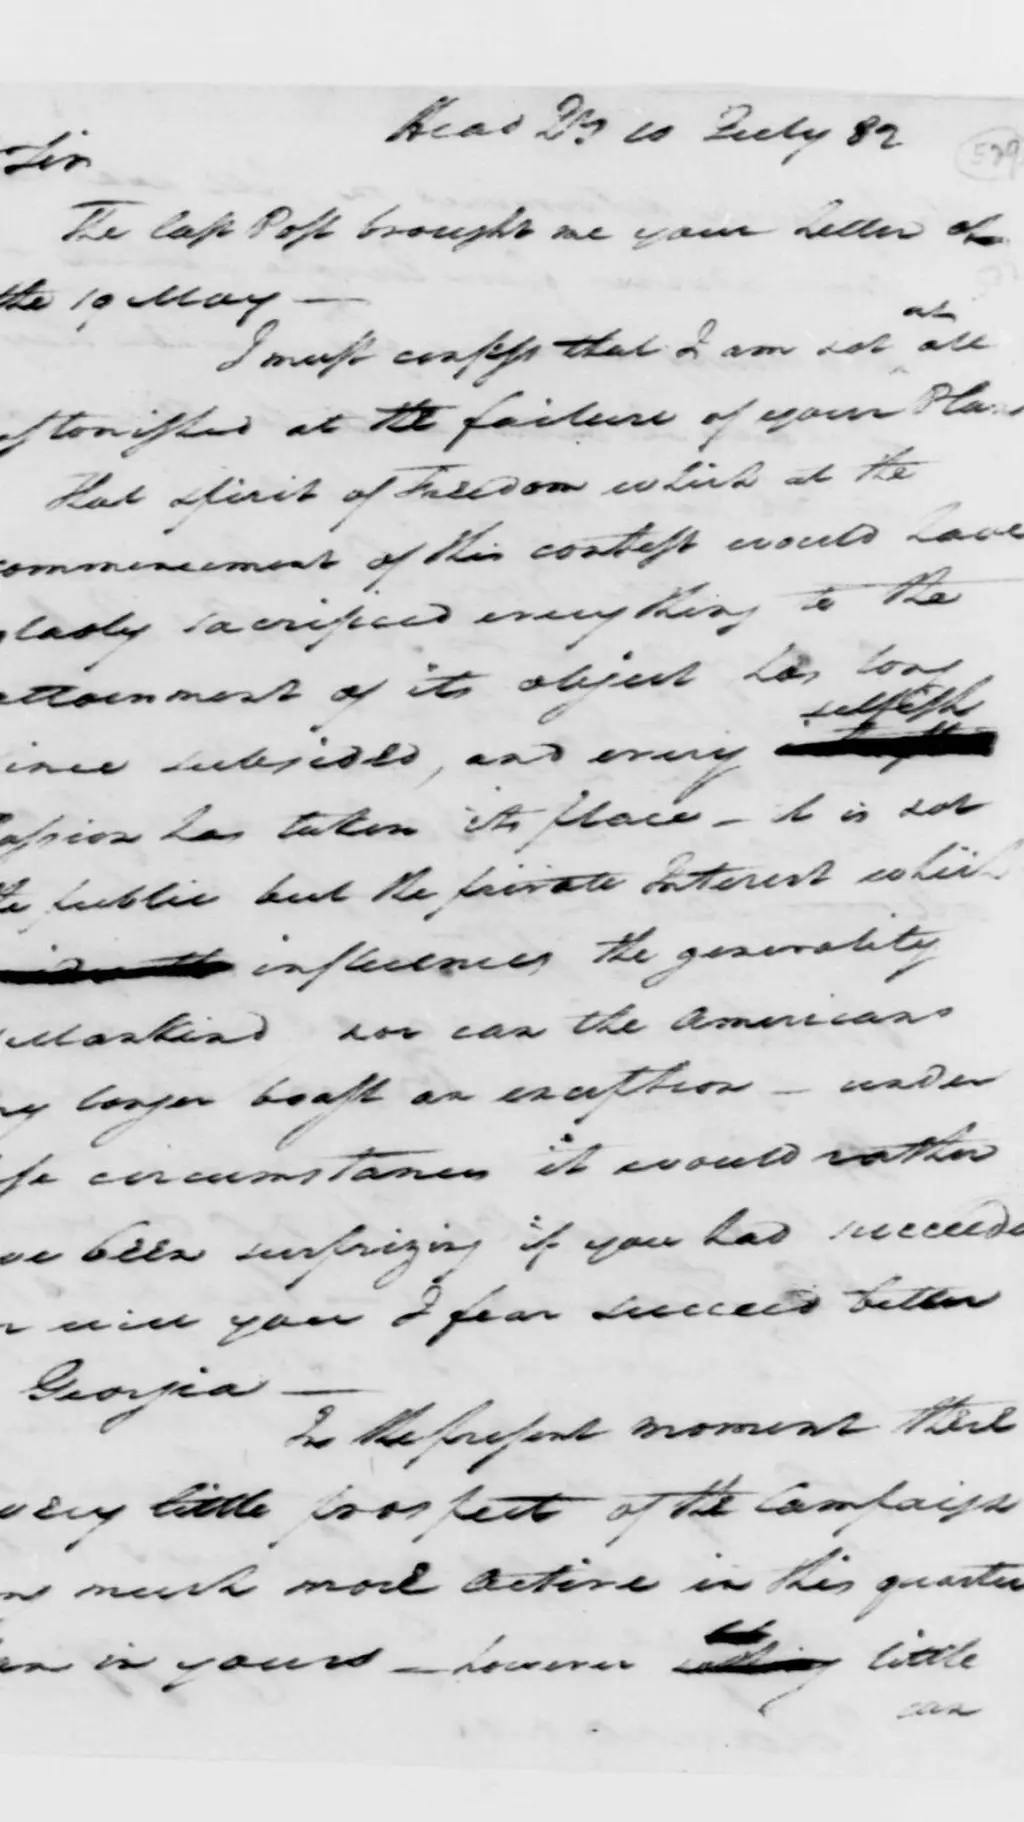 Head Qrs 10 July 82
529
Sir
The last Post brought me your Letter of
the 19 May —
I must confess that I am not at all
astonished at the failure of your Plan
that spirit of Freedom which at the
commencement of this contest would have
gladly sacrificed everything to the
attainment of its object has long
since subsided, and every selfish
Passion has taken its place — it is not
the public but the private Interest which
influences the generality
Mankind nor can the Americans
ny longer boast an exception — under
se circumstances it would rather
ve been surprizing if you had succeeded
r will you I fear succeed better
Georgia —
In the present moment there
very little prospect of the Campaign
ng much more active in this quarter
an in yours — however little
can